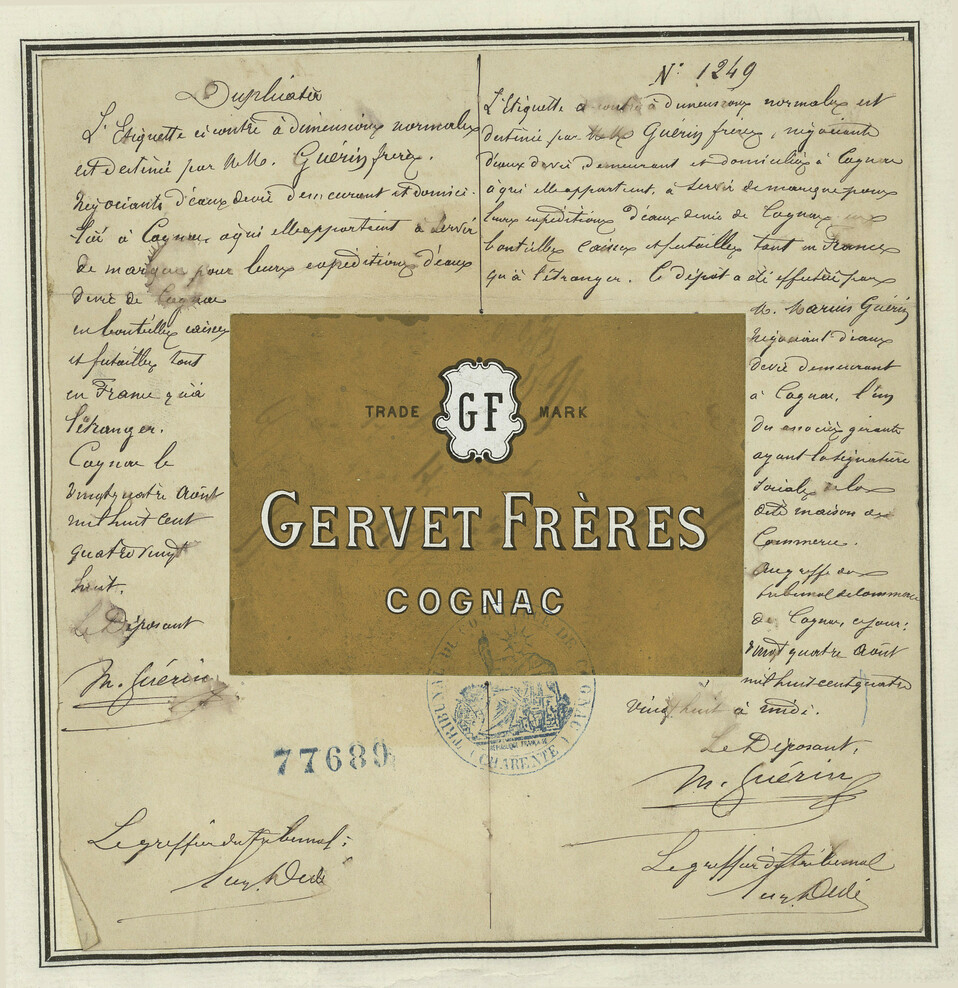 Duplicata
L'Etiquette ci contre à dimensions normales
est destiné par MM. Guérin frères.
Négociants d'eaux devie demeurant et domici-
lié à Cognac, à qui elle appartient à servir
de marque pour leurs expéditions d'eaux
devie de Cognac
en bouteilles caisses
et futailles tant
en France qu'à
l'étranger.
Cognac le
vingt quatre Août
mil huit cent
quatre vingt
huit.
Le Déposant
M. Guérin
Le greffier du tribunal:
N° 1249
L'Etiquette à dimensions normales est
destiné par MM Guérin frères, négociants
d'eaux devie demeurant et domiciliés à Cognac
à qui elle appartient, à servir de marque pour
leurs expéditions d'eaux devie de Cognac en
bouteilles caisses et futailles tant en France
qu'à l'étranger. Ce dépôt a été effectué par
M. Marius Guérin
Négociant d'eaux
devie demeurant
à Cognac, l'un
des associés gérants
ayant la signature
sociale de la
dite maison de
Commerce.
Au greffe du
tribunal de Commerce
de Cognac, ce jour:
vingt quatre Août
mil huit cent quatre
vingt huit à midi.
Le Déposant,
M. Guérin
Le greffier du tribunal
TRADE GF MARK
GERVET FRÈRES
COGNAC
TRIBUNAL DE COMMERCE DE COGNAC
(CHARENTE)
77689